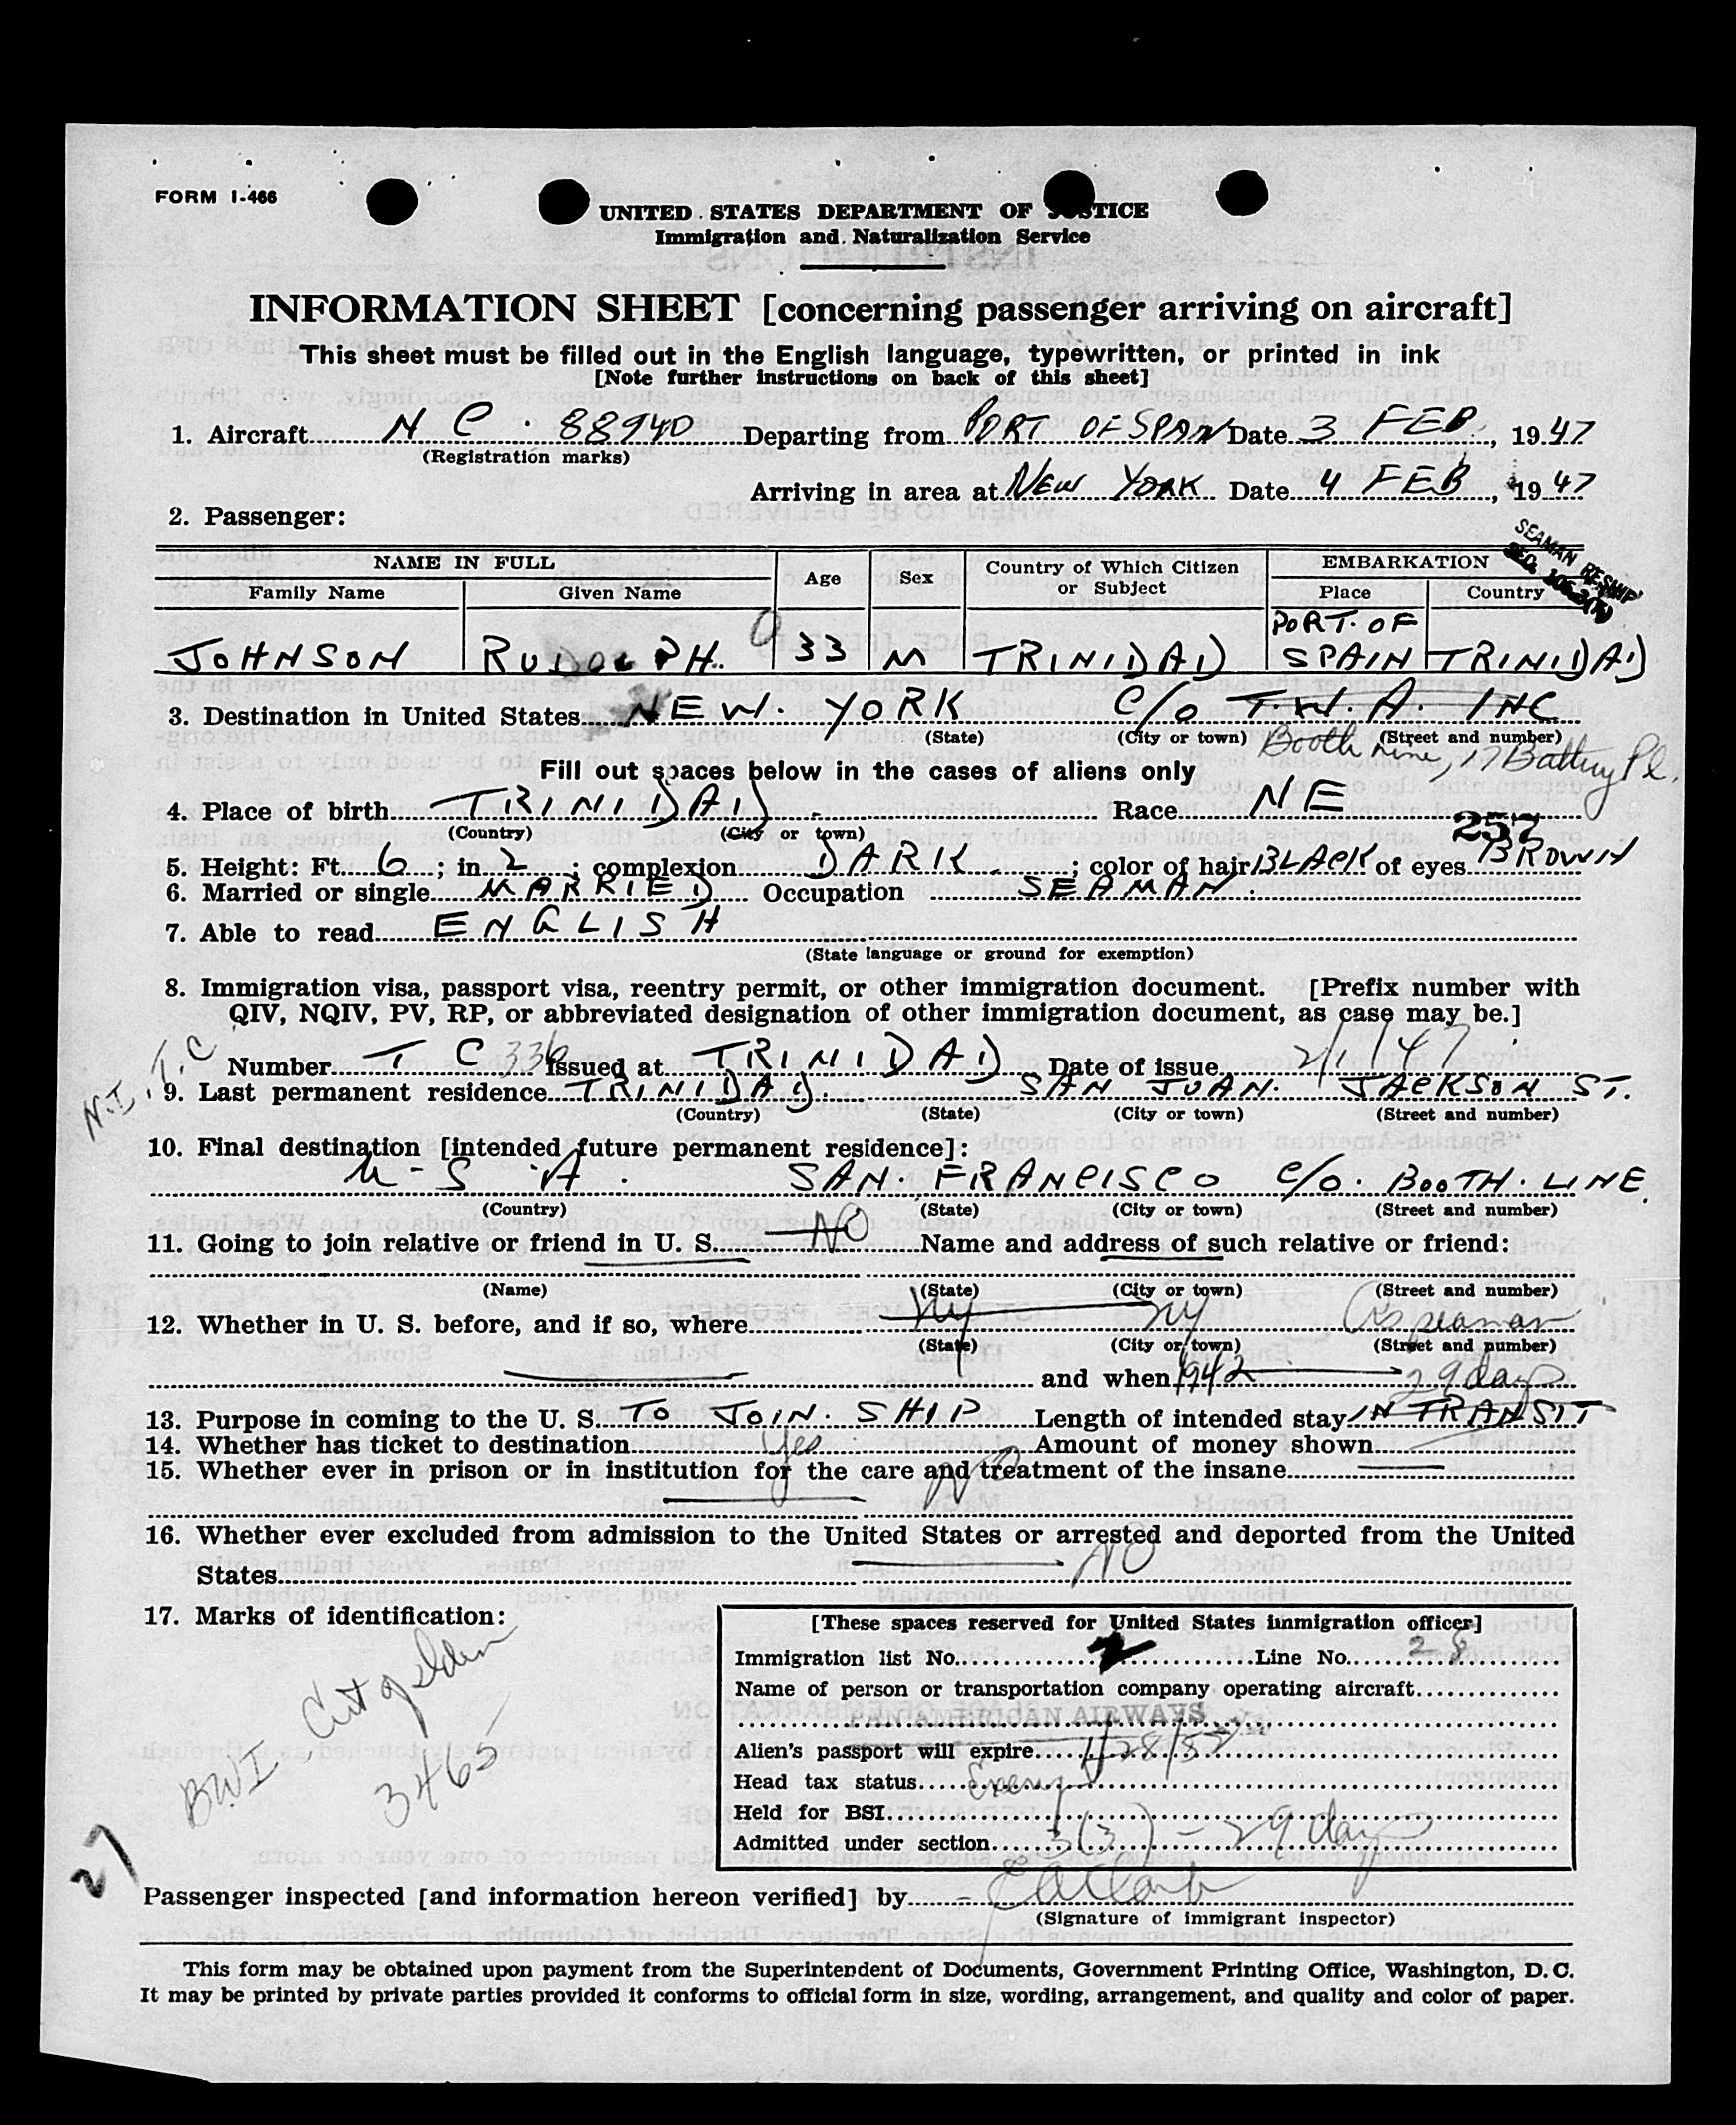 FORM I-466
UNITED STATES DEPARTMENT OF JUSTICE
Immigration and Naturalization Service
INFORMATION SHEET [concerning passenger arriving on aircraft]
This sheet must be filled out in the English language, typewritten, or printed in ink
[Note further instructions on back of this sheet]
1. Aircraft NC 88940 Departing from PORT OF SPAIN Date 3 FEB, 1947
(Registration marks)
Arriving in area at NEW YORK Date 4 FEB, 1947
2. Passenger:
SEAMAN RESHIP
NAME IN FULL Age Sex Country of Which Citizen or Subject EMBARKATION
Family Name Given Name Place Country
PORT. OF
JOHNSON RUDOLPH. 33 M TRINIDAD SPAIN TRINIDAD
3. Destination in United States NEW. YORK C/O T.W.A. INC
(State) (City or town) (Street and number)
Booth Line, 17 Battery Pl.
Fill out spaces below in the cases of aliens only
4. Place of birth TRINIDAD Race NE
(Country) (City or town)
257
5. Height: Ft. 6; in. 2; complexion DARK; color of hair BLACK of eyes BROWN
6. Married or single MARRIED Occupation SEAMAN.
7. Able to read ENGLISH
(State language or ground for exemption)
8. Immigration visa, passport visa, reentry permit, or other immigration document. [Prefix number with
QIV, NQIV, PV, RP, or abbreviated designation of other immigration document, as case may be.]
N.I.T.C
Number T C 336 Issued at TRINIDAD Date of issue 2/1/47
9. Last permanent residence TRINIDAD. SAN JUAN. JACKSON ST.
(Country) (State) (City or town) (Street and number)
10. Final destination [intended future permanent residence]:
U-S A. SAN. FRANCISCO C/O. BOOTH. LINE.
(Country) (State) (City or town) (Street and number)
11. Going to join relative or friend in U. S. NO Name and address of such relative or friend:
(Name) (State) (City or town) (Street and number)
12. Whether in U. S. before, and if so, where NY NY As seaman
(State) (City or town) (Street and number)
and when 1942 29 days
13. Purpose in coming to the U. S. TO JOIN. SHIP Length of intended stay IN TRANSIT
14. Whether has ticket to destination Yes Amount of money shown
15. Whether ever in prison or in institution for the care and treatment of the insane
NO
16. Whether ever excluded from admission to the United States or arrested and deported from the United
States NO
17. Marks of identification:
BWI
3465
27
[These spaces reserved for United States immigration officer]
Immigration list No. 2 Line No. 28
Name of person or transportation company operating aircraft
PAN AMERICAN AIRWAYS
Alien's passport will expire
Head tax status
Held for BSI
Admitted under section 3(3) - 29 days
Passenger inspected [and information hereon verified] by
(Signature of immigrant inspector)
This form may be obtained upon payment from the Superintendent of Documents, Government Printing Office, Washington, D. C.
It may be printed by private parties provided it conforms to official form in size, wording, arrangement, and quality and color of paper.